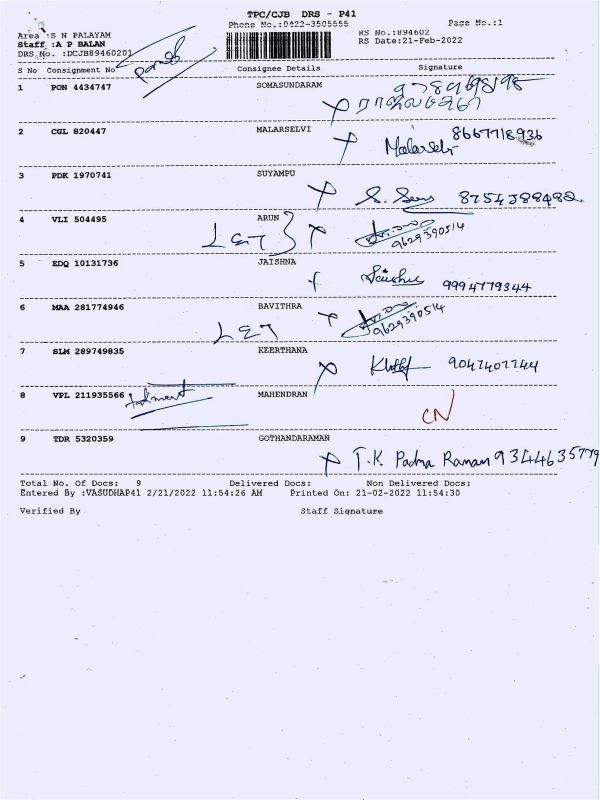 TPC/CJB DRS - P41
Phone No.:0422-3505555
Page No.:1
Area :S N PALAYAM
RS No.:894602
Staff :A P BALAN
RS Date:21-Feb-2022
DRS No. :DCJB89460201
S No Consignment No Consignee Details Signature
1 PON 4434747 SOMASUNDARAM
2 CGL 820447 MALARSELVI 8667718936
Malarselvi
3 PDK 1970741 SUYAMPU
4 VLI 504495 ARUN
9629390514
5 EDQ 10131736 JAISHNA
9994779344
6 MAA 281774946 BAVITHRA
9629390514
7 SLM 289749835 KEERTHANA
9047407744
8 VPL 211935566 MAHENDRAN
CN
9 TDR 5320359 GOTHANDARAMAN
T.K. Padma Raman 9344635779
Total No. Of Docs: 9 Delivered Docs: Non Delivered Docs:
Entered By :VASUDHAP41 2/21/2022 11:54:26 AM Printed On: 21-02-2022 11:54:30
Verified By Staff Signature